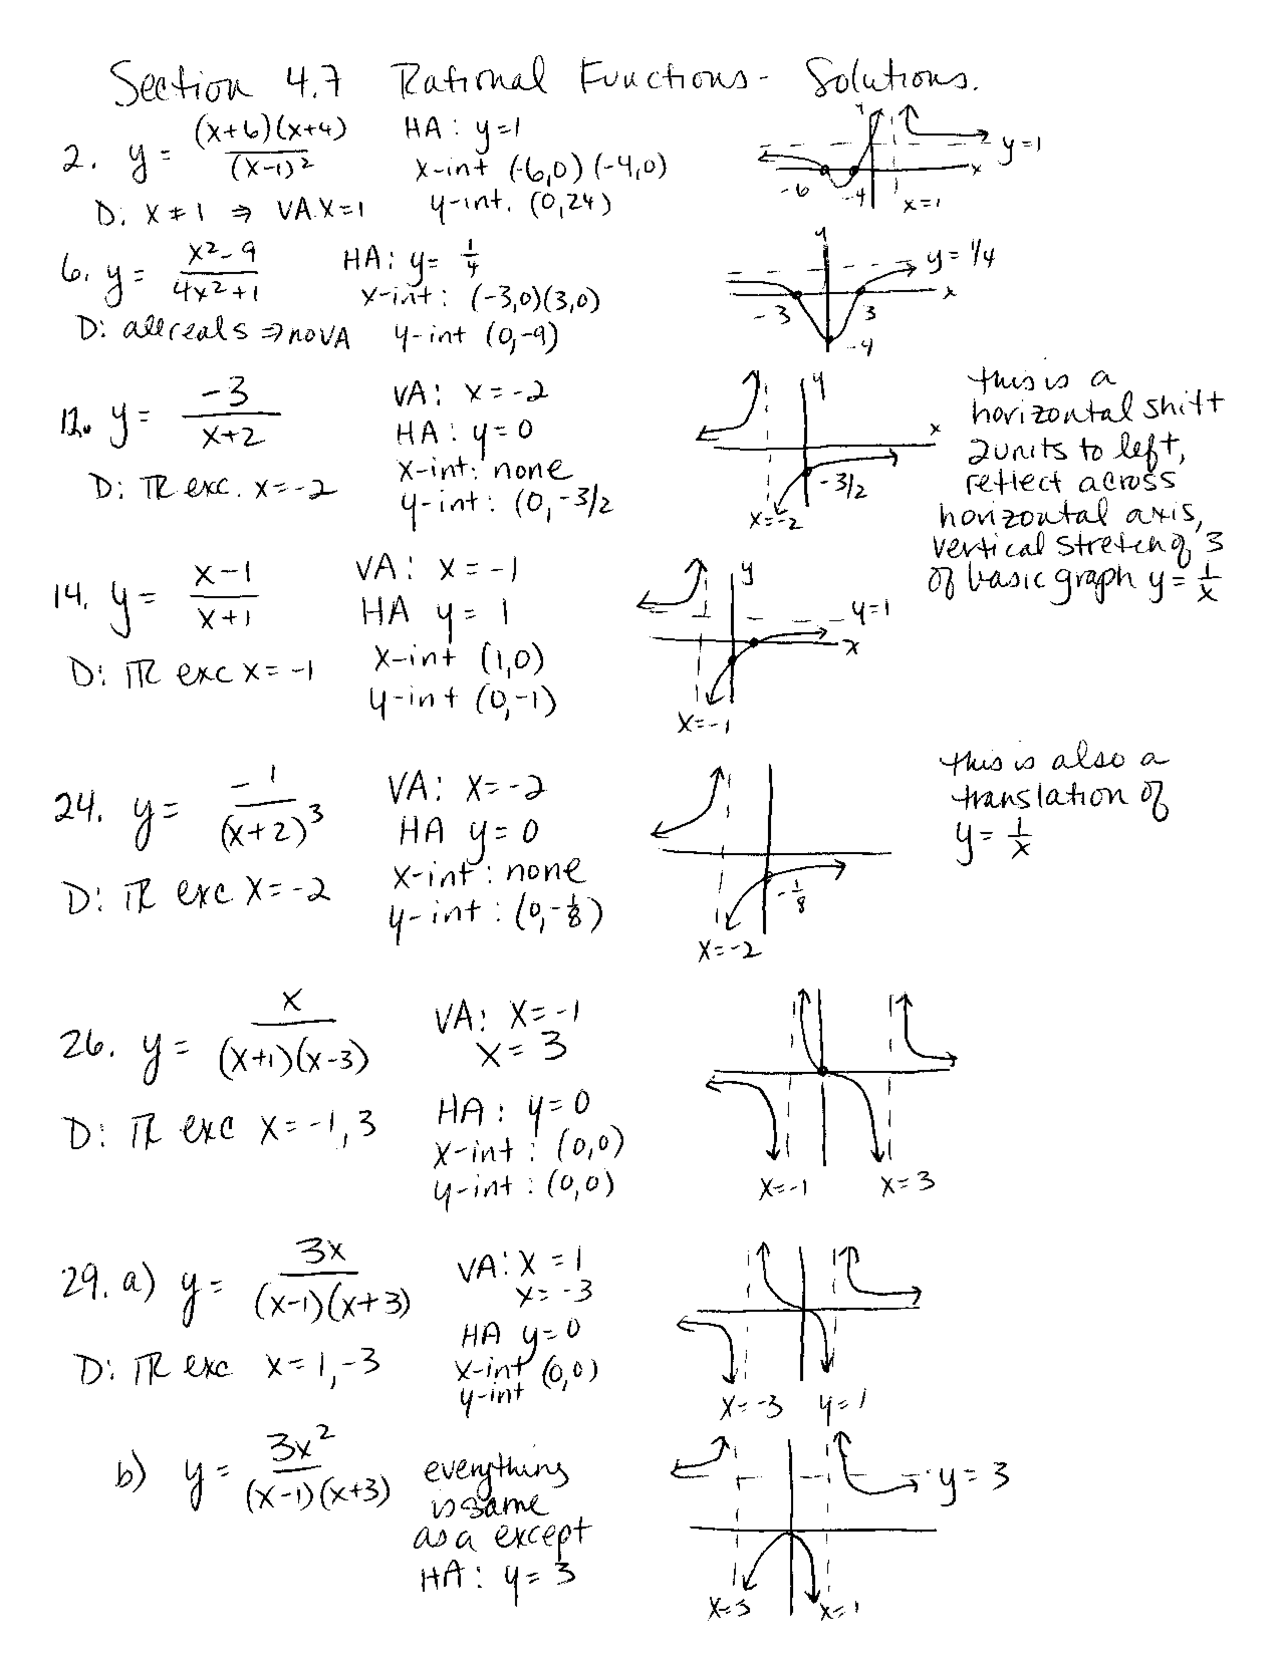 Section 4.7 Rational Functions - Solutions.
2. y = (x+6)(x+4) / (x-1)² HA: y=1
x-int (-6,0) (-4,0)
D: x ≠ 1 ⇒ VA x=1 y-int. (0,24)
y y=1 x -6 -4 x=1
6. y = x²-9 / 4x²+1 HA: y = 1/4
x-int: (-3,0)(3,0)
D: all reals ⇒ no VA y-int (0,-9)
y y = 1/4 x -3 3 -4
12. y = -3 / x+2 VA: x = -2
HA: y = 0
x-int: none
D: ℝ exc. x = -2 y-int: (0, -3/2
y x -3/2 x=-2
this is a
horizontal shift
2 units to left,
reflect across
horizontal axis,
vertical stretch of 3
of basic graph y = 1/x
14. y = x-1 / x+1 VA: x = -1
HA y = 1
D: ℝ exc x = -1 x-int (1,0)
y-int (0,-1)
y y=1 x x=-1
24. y = -1 / (x+2)³ VA: x=-2
HA y=0
D: ℝ exc x = -2 x-int: none
y-int: (0,-1/8)
-1/8 x=-2
this is also a
translation of
y = 1/x
26. y = x / (x+1)(x-3) VA: x=-1
x = 3
D: ℝ exc x = -1, 3 HA: y=0
x-int: (0,0)
y-int: (0,0)
x=-1 x=3
29. a) y = 3x / (x-1)(x+3) VA: x = 1
x = -3
HA y=0
D: ℝ exc x = 1, -3 x-int (0,0)
y-int
x=-3 y=1
b) y = 3x² / (x-1)(x+3) everything
is same
as a except
HA: y = 3
y = 3 x=3 x=1